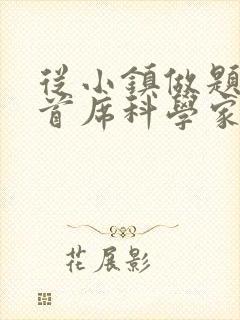 從小鎮做題
首席科學家
花展影